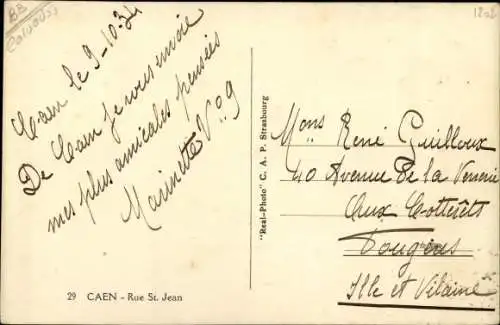 BB
Calvados
Caen le 9-10-34
De Caen je vous envoie
mes plus amicales pensées
Marinette V° 9
29 CAEN - Rue St. Jean
"Real-Photo" C. A. P. Strasbourg
Mons René Guilloux
40 Avenue de la Verrerie
Aux Cotterêts
Fougères
Ille et Vilaine